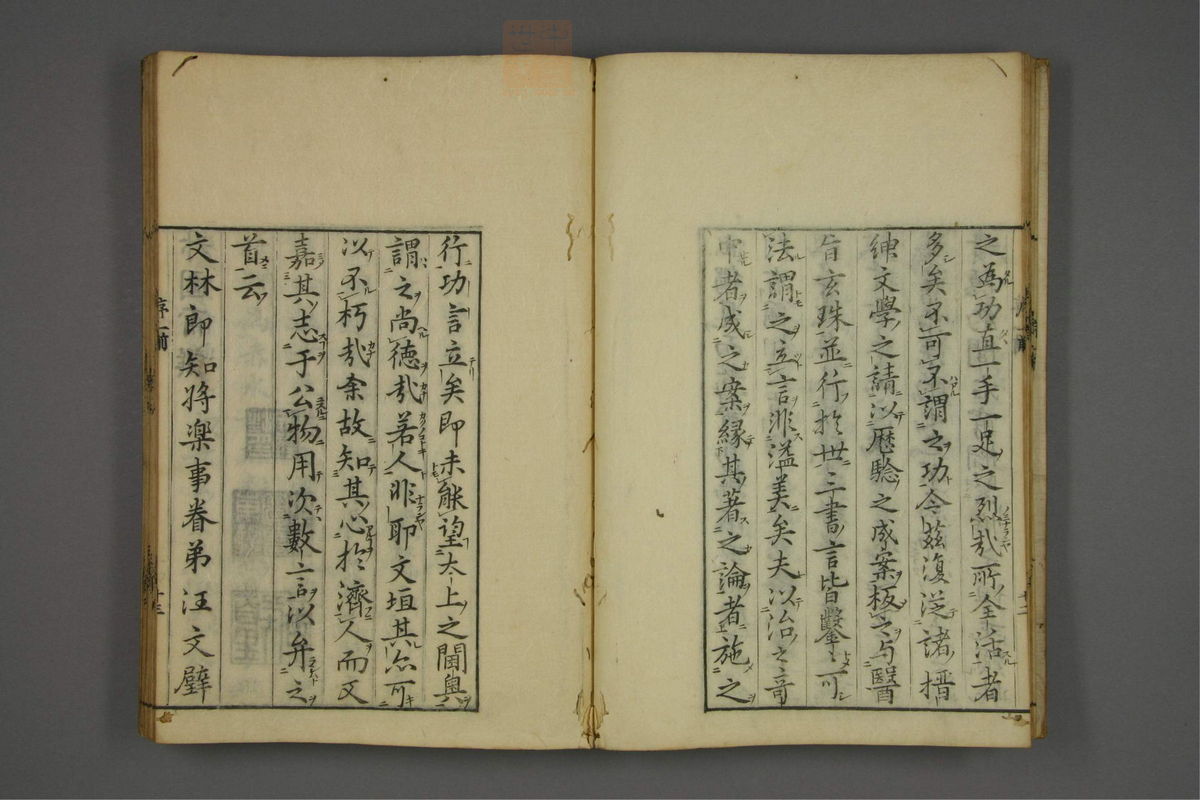 之為功直一手一足之烈哉所全活者
多矣不可不謂之功今茲復從諸搢
紳文學之請以歷驗之成案板之与醫
旨玄珠並行於世三書言皆鑿〻可
法謂之立言非溢美矣夫以治之奇
中者成之案緣其著之論者施之
行功言立矣即未能望太上之閫奥
謂之尚德哉若人非耶文垣其亦可
以不朽哉余故知其心於濟人而又
嘉其志于公物用次數言以弁之
首云
文林郎知將楽事眷弟汪文璧